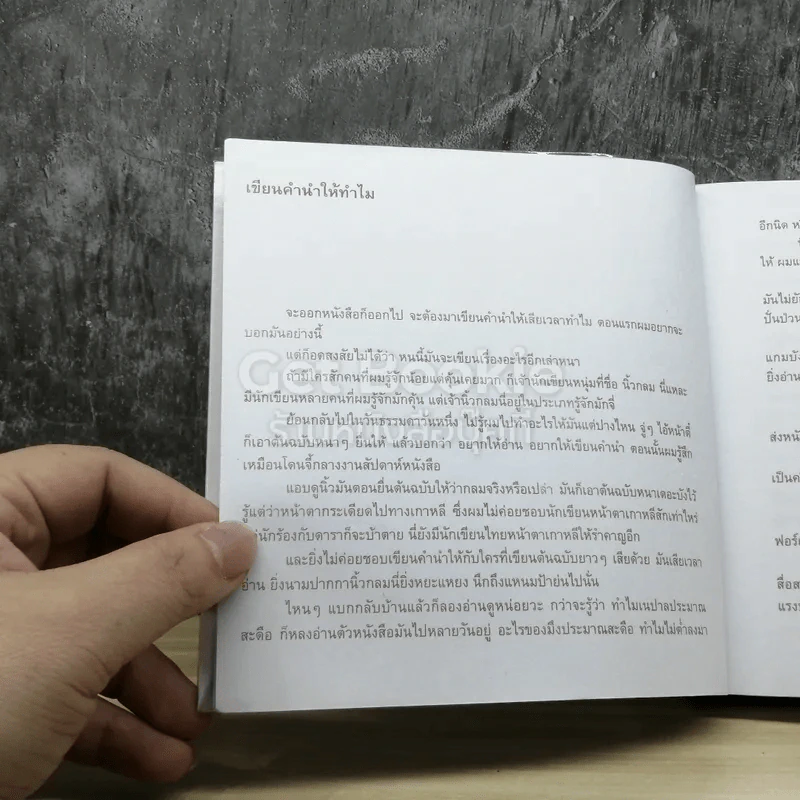 เขียนคำนำให้ทำไม
จะออกหนังสือก็ออกไป จะต้องมาเขียนคำนำให้เสียเวลาทำไม ตอนแรกผมอยากจะ
บอกมันอย่างนี้
แต่ก็อดสงสัยไม่ได้ว่า หนนี้มันจะเขียนเรื่องอะไรอีกเล่าหนา
ถ้ามีใครสักคนที่ผมรู้จักน้อยแต่คุ้นเคยมาก ก็เจ้านักเขียนหนุ่มที่ชื่อ นิ้วกลม นี่แหละ
มีนักเขียนหลายคนที่ผมรู้จักมักคุ้น แต่เจ้านิ้วกลมนี่อยู่ในประเภทรู้จักมักจี่
ย้อนกลับไปในวันธรรมดาวันหนึ่ง ไม่รู้ผมไปทำอะไรให้มันแต่ปางไหน จู่ๆ ไอ้หน้าตี๋
ก็เอาต้นฉบับหนาๆ ยื่นให้ แล้วบอกว่า อยากให้อ่าน อยากให้เขียนคำนำ ตอนนั้นผมรู้สึก
เหมือนโดนจี้กลางงานสัปดาห์หนังสือ
แอบดูนิ้วมันตอนยื่นต้นฉบับให้ว่ากลมจริงหรือเปล่า มันก็เอาต้นฉบับหนาเตอะบังไว้
รู้แต่ว่าหน้าตากระเดียดไปทางเกาหลี ซึ่งผมไม่ค่อยชอบนักเขียนหน้าตาเกาหลีสักเท่าไหร่
นักร้องกับดาราก็จะบ้าตาย นี่ยังมีนักเขียนไทยหน้าตาเกาหลีให้รำคาญอีก
และยิ่งไม่ค่อยชอบเขียนคำนำให้กับใครที่เขียนต้นฉบับยาวๆ เสียด้วย มันเสียเวลา
อ่าน ยิ่งนามปากกานิ้วกลมนี่ยิ่งหยะแหยง นึกถึงแหนมป้าย่นไปนั่น
ไหนๆ แบกกลับบ้านแล้วก็ลองอ่านดูหน่อยวะ กว่าจะรู้ว่า ทำไมเนปาลประมาณ
สะดือ ก็หลงอ่านตัวหนังสือมันไปหลายวันอยู่ อะไรของมึงประมาณสะดือ ทำไมไม่ต่ำลงมา
อีกนิด
ให้
มันไม่
ปั่นป่วน
แกมบัง
ยิ่งอ่าน
ส่งหนัง
เป็นค
สื่อส
แรง
Get Bookie
ร้านหนังสือมุมนี้